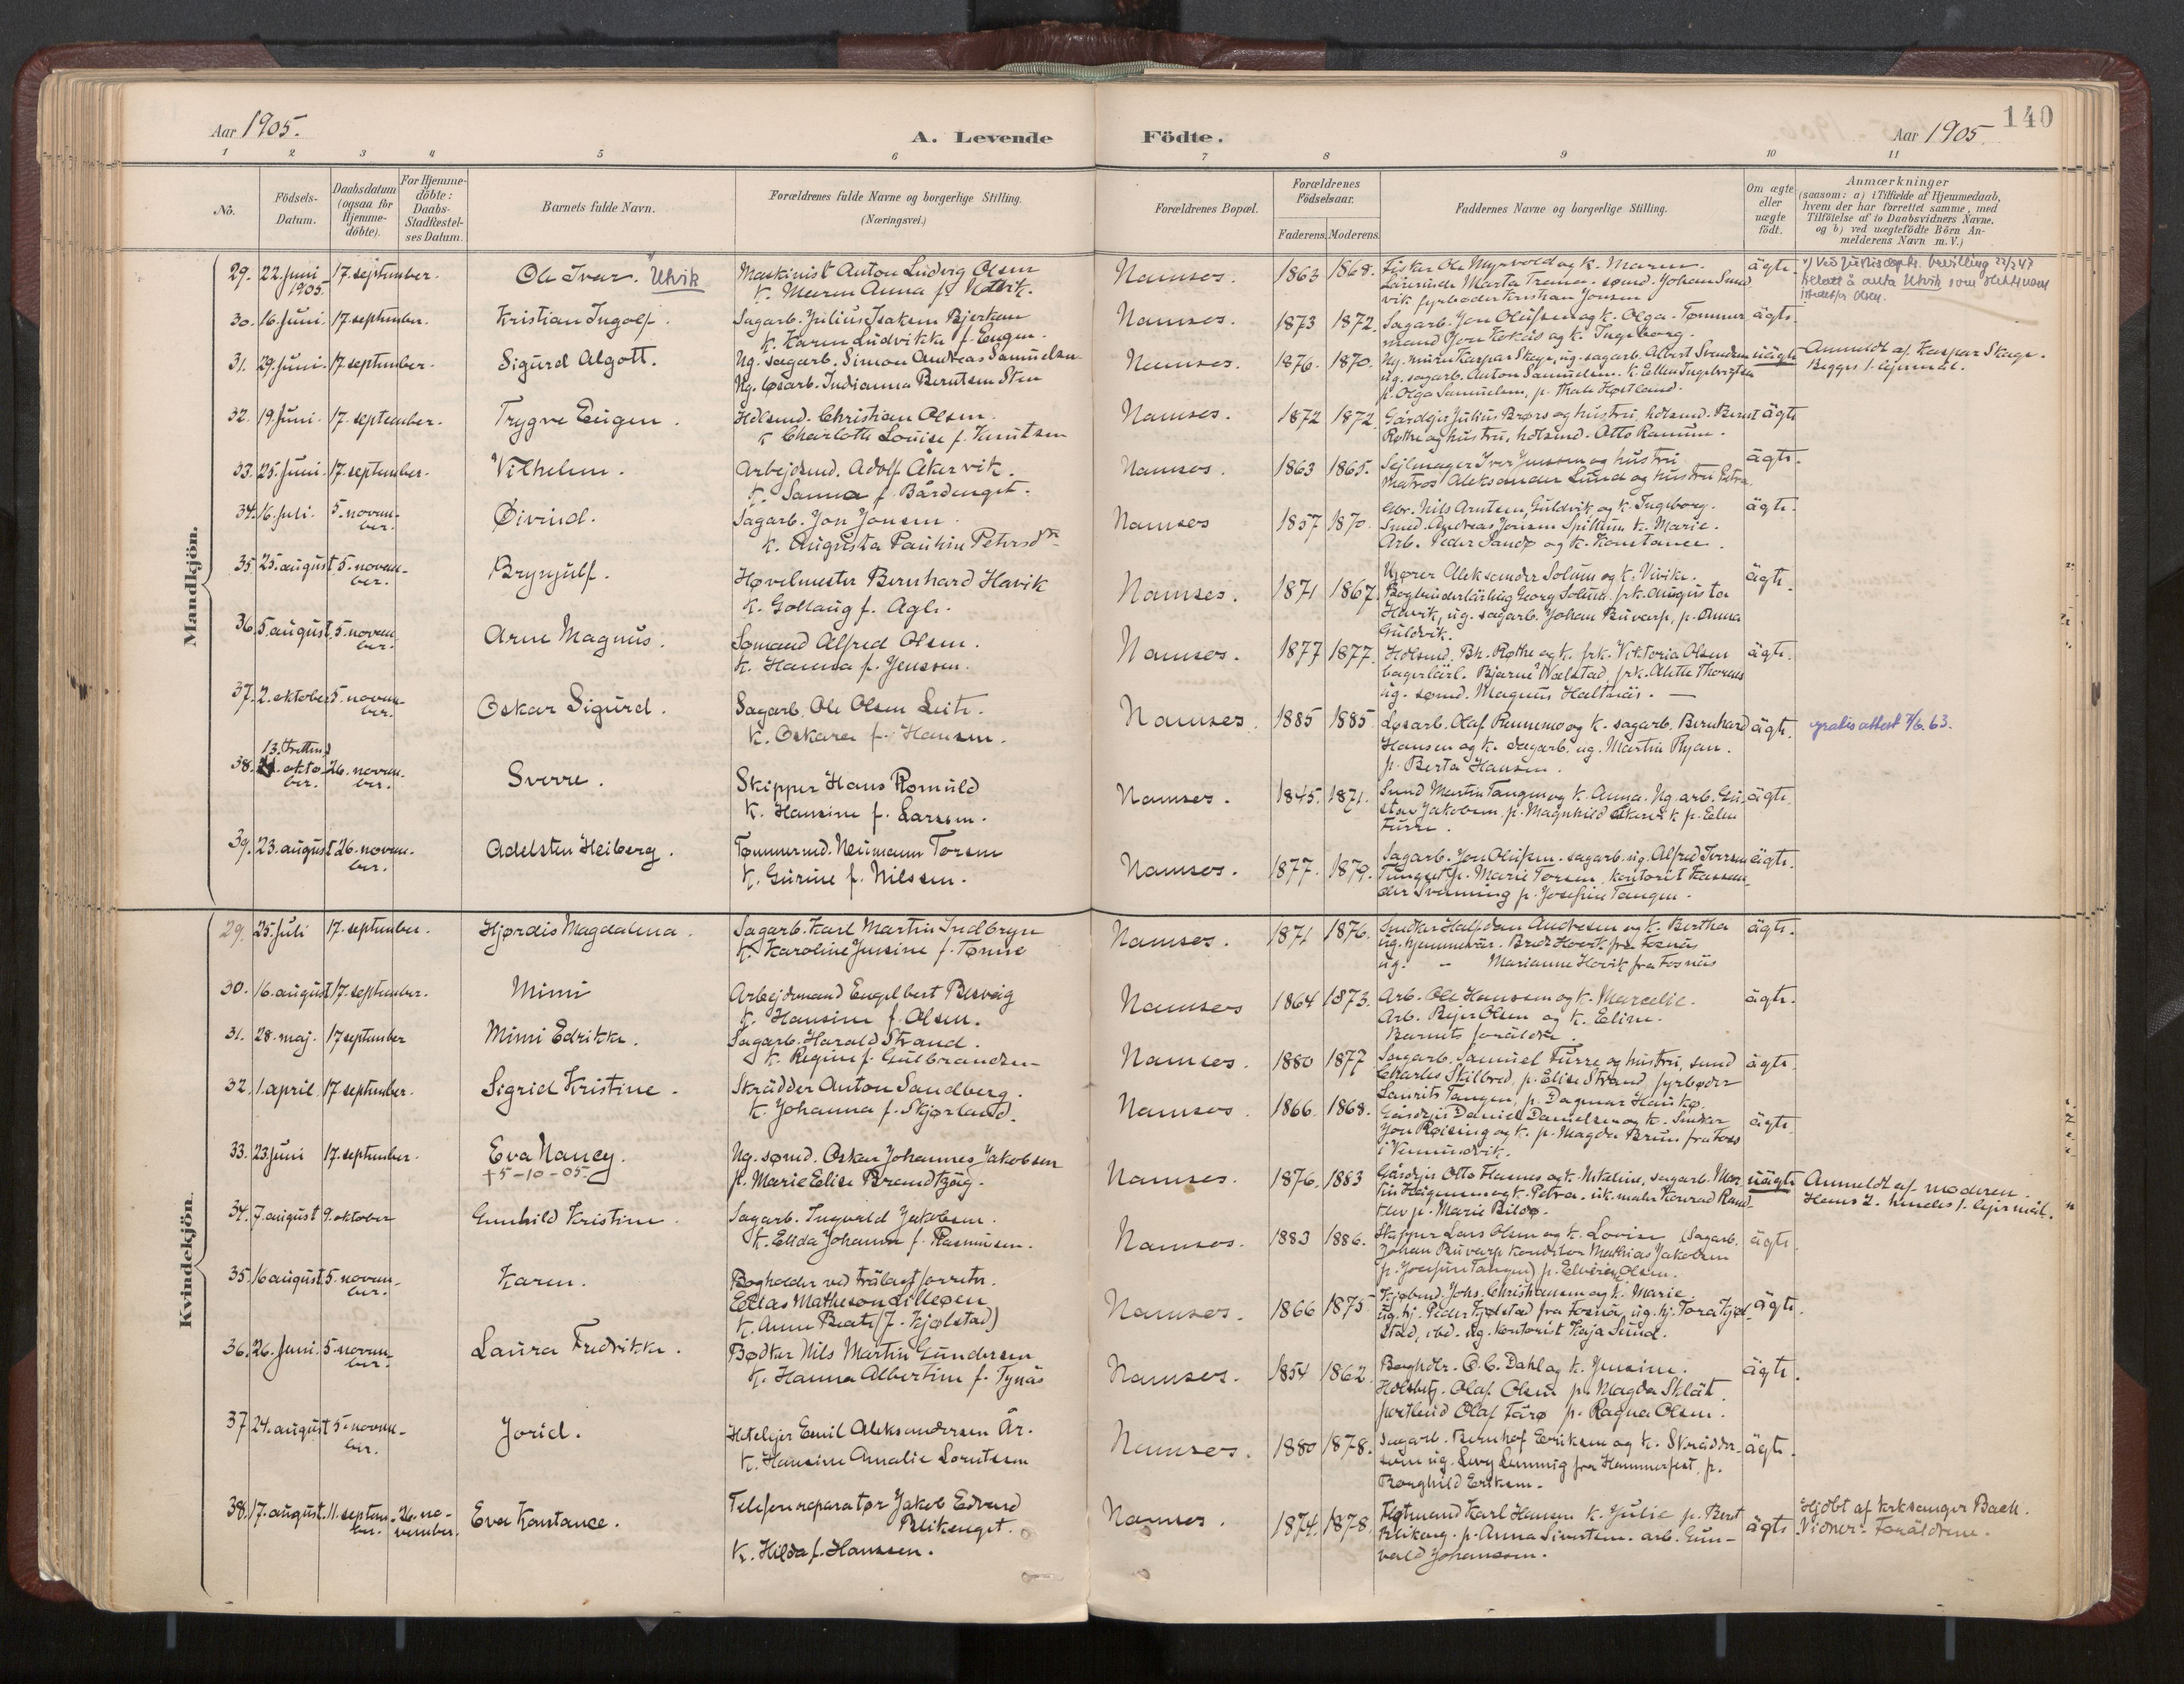 140
Aar 1905.
A. Levende
Födte.
Aar 1905.
1 2 3 4 5 6 7 8 9 10 11
No.
Födsels-
Datum.
Daabsdatum
(ogsaa for
Hjemme-
döbte).
For Hjemme-
döbte:
Daabs-
Stadfæstel-
ses Datum.
Barnets fulde Navn.
Forældrenes fulde Navne og borgerlige Stilling.
(Næringsvei.)
Forældrenes Bopæl.
Forældrenes
Födselsaar.
Faderens. Moderens.
Faddernes Navne og borgerlige Stilling.
Om ægte
eller
uægte
födt.
Anmærkninger
(saasom: a) i Tilfælde af Hjemmedaab,
hvem der har forrettet samme, med
Tilföielse af to Daabsvidners Navne.
og b) ved uægtefödte Börn An-
melderens Navn m. V.)
Mandkjön.
29. 22. juni 1905. 17. september. Ole Ivar. Utvik
Maskinist Anton Ludvig Olsen
K. Maren Anna f.
Namsos. 1863 1868.
Fisker Ole Myrvold og k. Maren.
vik fyrbøder Kristian Jonsen
ägte.
30. 16. juni. 17. september. Kristian Ingolf.
Sagarb. Julius Isaksen Bjerkan
K. Karen Ludvikka f. Eugen.
Namsos. 1873 1872.
Sagarb. Jon Olufsen og k. Olga. Tømmer
mand Jon Kokås og k. Ingeborg.
ägte.
31. 29. juni. 17. september. Sigurd Algott.
Ug. sagarb. Simon Andreas Samuelsen
Ug. løsarb. Indianna Berntsen Sten
Namsos. 1876. 1870.
Ug. murer Kaspar Skage, ug. sagarb. Albert Svendsen
ug. sagarb. Anton Samuelsen. k. Ellen Ingebrigtsen
p. Olga Samuelsen, p. Thale Høstland.
uägte
Anmeldt af Kaspar Skage.
Begges 1. lejermål.
32. 19. juni. 17. september. Trygve Eugen.
Hdlsmd. Christian Olsen.
K. Charlotte Louise f. Knutsen
Namsos. 1872 1872.
Gårdejer Julius Brørs og hustru, hdlsmd. Bernt
Rothe og hustru, hdlsmd. Otto Ranum.
ägte
33. 25. juni. 17. september. Vilhelm.
Arbejdsmd. Adolf Åkervik.
K. Sanna f. Bårdenget.
Namsos. 1863 1865.
Sejlmager Iver Jenssen og hustru
Matros Aleksander Lund og hustru Petra
ägte.
34. 16. juli. 5. november. Øivind.
Sagarb. Jon Jonsen.
K. Augusta Pauline Petersdtr.
Namsos 1857 1870.
Gbr. Nils Arntsen, Guldvik, og k. Ingeborg.
Smed. Andreas Jensen Spillum k. Marie.
Arb. Peder Sandø og k. Konstance.
ägte.
35. 25. august. 5. november. Brynjulf.
Høvelmester Bernhard Havik
K. Gollaug f. Agle.
Namsos. 1871 1867.
Kjører Aleksander Solum og k. Vivike.
Bogbinderlärling Georg Solum, frk. Augusta
Havik, ug. sagarb. Johan Buvarp, p. Anna
Guldvik.
ägte.
36. 5. august. 5. november. Arne Magnus.
Sømand Alfred Olsen.
K. Hanna f. Jenssen.
Namsos. 1877 1877.
Hdlsmd. Bh. Rothe og k. frk. Viktoria Olsen
bagerlärl. Bjarne Walstad, frk. Alette Thornes
ug. sømd. Magnus Haltnäs.
ägte.
37. 2. oktober 5. november. Oskar Sigurd.
Sagarb. Ole Olsen Leite.
K. Oskara f. Hansen.
Namsos. 1885 1885
Løsarb. Olaf Rennemo og k. sagarb. Bernhard
Hansen og k. sagarb. ug. Martin Ryan.
p. Berta Hansen.
ägte.
gratis attest 7/6. 63.
38. 13. (trettende) oktober. 26. november. Sverre.
Skipper Hans Romuld
K. Hansine f. Larsen.
Namsos. 1845. 1871.
Smed Martin Tangen og k. Anna. Ug. arb. Gu-
stav Jakobsen, p. Magnhild Åkervik p. Elen
Furre.
ägte.
39. 23. august 26. november. Adelsten Heiberg.
Tømmermd. Neumann Torsen
K. Gurine f. Nilssen.
Namsos. 1877. 1879.
Sagarb. Jon Olufsen. sagarb. ug. Alfred Iversen
p. Marie Torsen, kontorist Kassan-
der Svenning p. Josefine Tangen.
ägte.
Kvindekjön.
29. 25. juli 17. september. Hjørdis Magdalena.
Sagarb. Karl Martin Indbryn
K. Karoline Jensine f. Tønne
Namsos. 1871 1876.
Snedker Halfdan Andresen og k. Berthea
ug. hjemmevär. Hovik fra Fosnäs
ug. – Marianne Hovik fra Fosnäs
ägte.
30. 16. august 17. september. Mimi
Arbejdsmand Engelbert Besvåg
K. Hansine f. Olsen.
Namsos 1864 1873.
Arb. Ole Hanssen og k. Marcelie.
Arb. Bejer Olsen og k. Eline.
Barnets foräldre.
ägte.
31. 28. maj. 17 september Mimi Edrikke.
Sagarb. Harald Strand.
K. Regine f. Gulbrandsen
Namsos. 1880 1877
Sagarb. Samuel Furre og hustru, smed
Charles Skilbred, p. Elise Strand, fyrbøder
Laurits Tangen, p. Dagmar Hauko.
ägte.
32. 1. april. 17. september. Sigrid Kristine.
Skrädder Anton Sandberg.
K. Johanna f. Skjørland.
Namsos. 1866. 1868.
Gårdejer Daniel Danielsen og k. Snedker
Jon Røising og k. p. Magda Bruun fra Foss
i Vemundvik.
ägte.
33. 23 juni 17. september. Eva Nancy.
+ 5-10-05.
Ug. sømd. Oskar Johannes Jakobsen
p. Marie Elise Brandtzäg.
Namsos. 1876. 1883
Gårdejer Otto Flasnes og k. Nikoline, sagarb. Mar-
tin og k. Petra. uk. maler Konrad Rand-
klev p. Marie Bildø.
uägte
Anmeldt af moderen.
Hans 2. hendes 1. lejermål.
34. 7. august 9. oktober Gunhild Kristine.
Sagarb. Ingvald Jakobsen.
K. Ellda Johanna f. Rasmussen.
Namsos. 1883 1886.
Skipper Lars Olsen og k. Lovise (Sagarb.
Johan Buvarp konditor Mathias Jakobsen
p. Josefine Tangen) p. Elvine Olsen.
ägte.
35. 16 august 5. november. Karen.
Bogholder ved trälastforretn.
Edias Matheson Lilleøen
K. Anne Beate (f. Kjølstad)
Namsos. 1866 1875
Kjøbmd. Johs. Christiansen og k. Marie.
ug. hj. Peder Kjølstad fra Fosnäs, ug. hj. Tora Kjøl-
stad, ibd. ug. kontorist Kaja Lund.
ägte.
36. 26. juni. 5. november. Laura Fredrikke.
Bødker Nils Martin Gundersen
K. Hanna Albertine f. Tynäs
Namsos. 1854 1862.
Boghdlr. O. C. Dahl og k. Jensine.
Hdlsbetj. Olaf Olsen p. Magda Sklät.
portbud Olaf Färø p. Ragna Olsen.
ägte.
37. 24. august 5. november. Jorid.
Hotelejer Emil Aleksandersen År.
K. Hansine Amalie Lorntsen
Namsos. 1880 1878.
Sagarb. Bernhof Eriksen og k. Skrädder-
svend ug. Levy Lemmig fra Hammerfest, p.
Borghild Eriksen.
ägte.
38. 17. august. 11. september. 26. november. Eva Konstance.
Telefonreparatør Jakob Edvard
Blikenget.
K. Hilda f. Hanssen.
Namsos. 1874. 1878.
Fløtmand Karl Hansen k. Julie p. Berit
Blikeng. p. Anna Sivertsen. arb. Gun-
vald Johanssen.
ägte.
Hjdbt af kirkesanger Bach.
Vidner: Foräldrene.